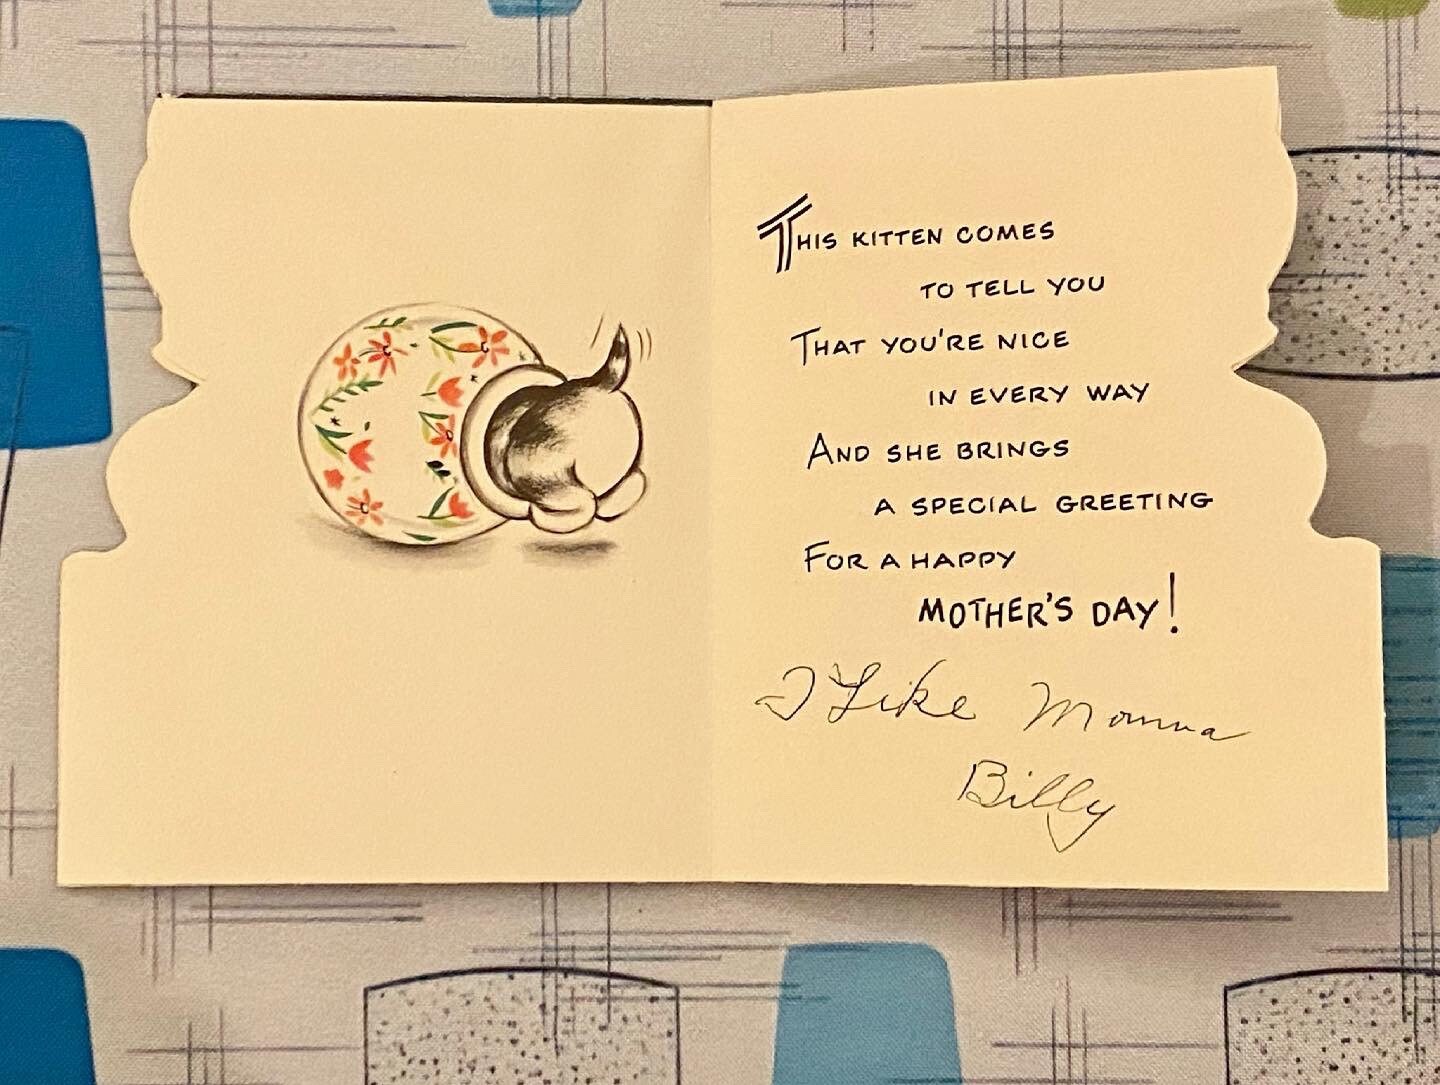 THIS KITTEN COMES
TO TELL YOU
THAT YOU'RE NICE
IN EVERY WAY
AND SHE BRINGS
A SPECIAL GREETING
FOR A HAPPY
MOTHER'S DAY!
I Like Momma
Billy